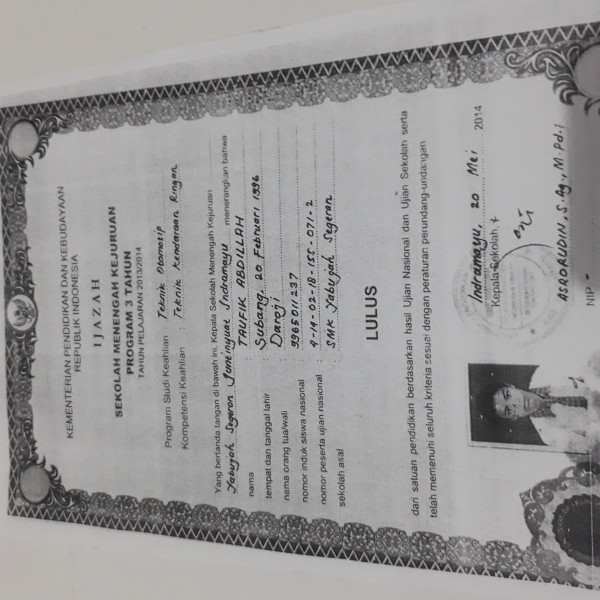 KEMENTERIAN PENDIDIKAN DAN KEBUDAYAAN
REPUBLIK INDONESIA
IJAZAH
SEKOLAH MENENGAH KEJURUAN
PROGRAM 3 TAHUN
TAHUN PELAJARAN 2013/2014
Program Studi Keahlian : Teknik Otomotif
Kompetensi Keahlian : Teknik Kendaraan Ringan
Yang bertanda tangan di bawah ini, Kepala Sekolah Menengah Kejuruan
Yabujah Segeran Juntinyuat Indramayu menerangkan bahwa
nama : TAUFIK ABDILLAH
tempat dan tanggal lahir : Subang, 20 Februari 1996
nama orang tua/wali : Daroji
nomor induk siswa nasional : 9965011237
nomor peserta ujian nasional : 4-14-02-18-155-071-2
sekolah asal : SMK Yabujah Segeran
LULUS
dari satuan pendidikan berdasarkan hasil Ujian Nasional dan Ujian Sekolah serta
telah memenuhi seluruh kriteria sesuai dengan peraturan perundang-undangan
Indramayu, 20 Mei 2014
Kepala Sekolah,
ASRORUDIN, S.Ag., M.Pd.I
NIP -